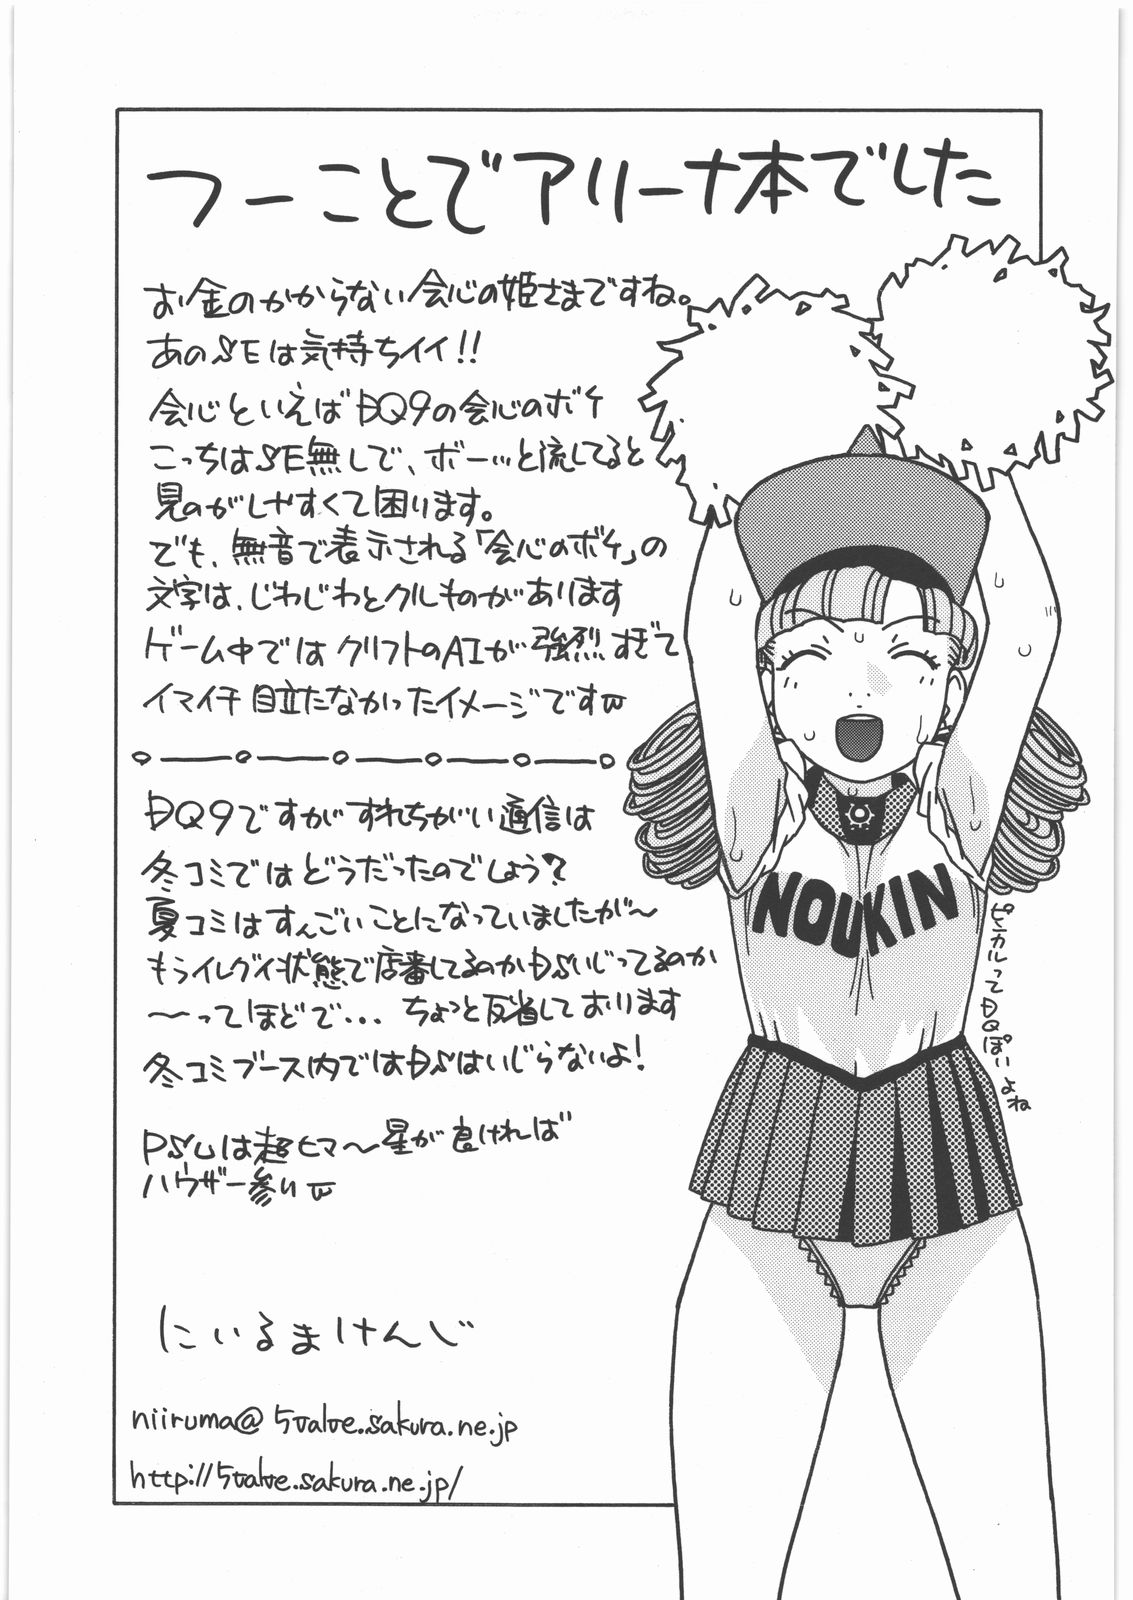 つーことでアリーナ本でした
お金のかからない会心の姫さまですね。
あのSEは気持ちイイ!!
会心といえばDQ9の会心のボケ
こっちはSE無しで、ボーッと流してると
見のがしやすくて困ります。
でも、無音で表示される「会心のボケ」の
文字は、じわじわとクルものがあります
ゲーム中ではクリフトのAIが強烈すぎて
イマイチ目立たなかったイメージですw
DQ9ですがすれちがい通信は
冬コミではどうだったのでしょう?
夏コミはすんごいことになっていましたが〜
もうイレグイ状態で店番してるのかDSいじってるのか
〜ってほどで... ちょっと反省しております
冬コミブース内ではDSはいじらないよ!
PSUは超ヒマ〜星が良ければ
ハウザー参りw
にいるまけんじ
niiruma@5valve.sakura.ne.jp
http://5valve.sakura.ne.jp/
NOUKIN
ピカルってDQぽいよね